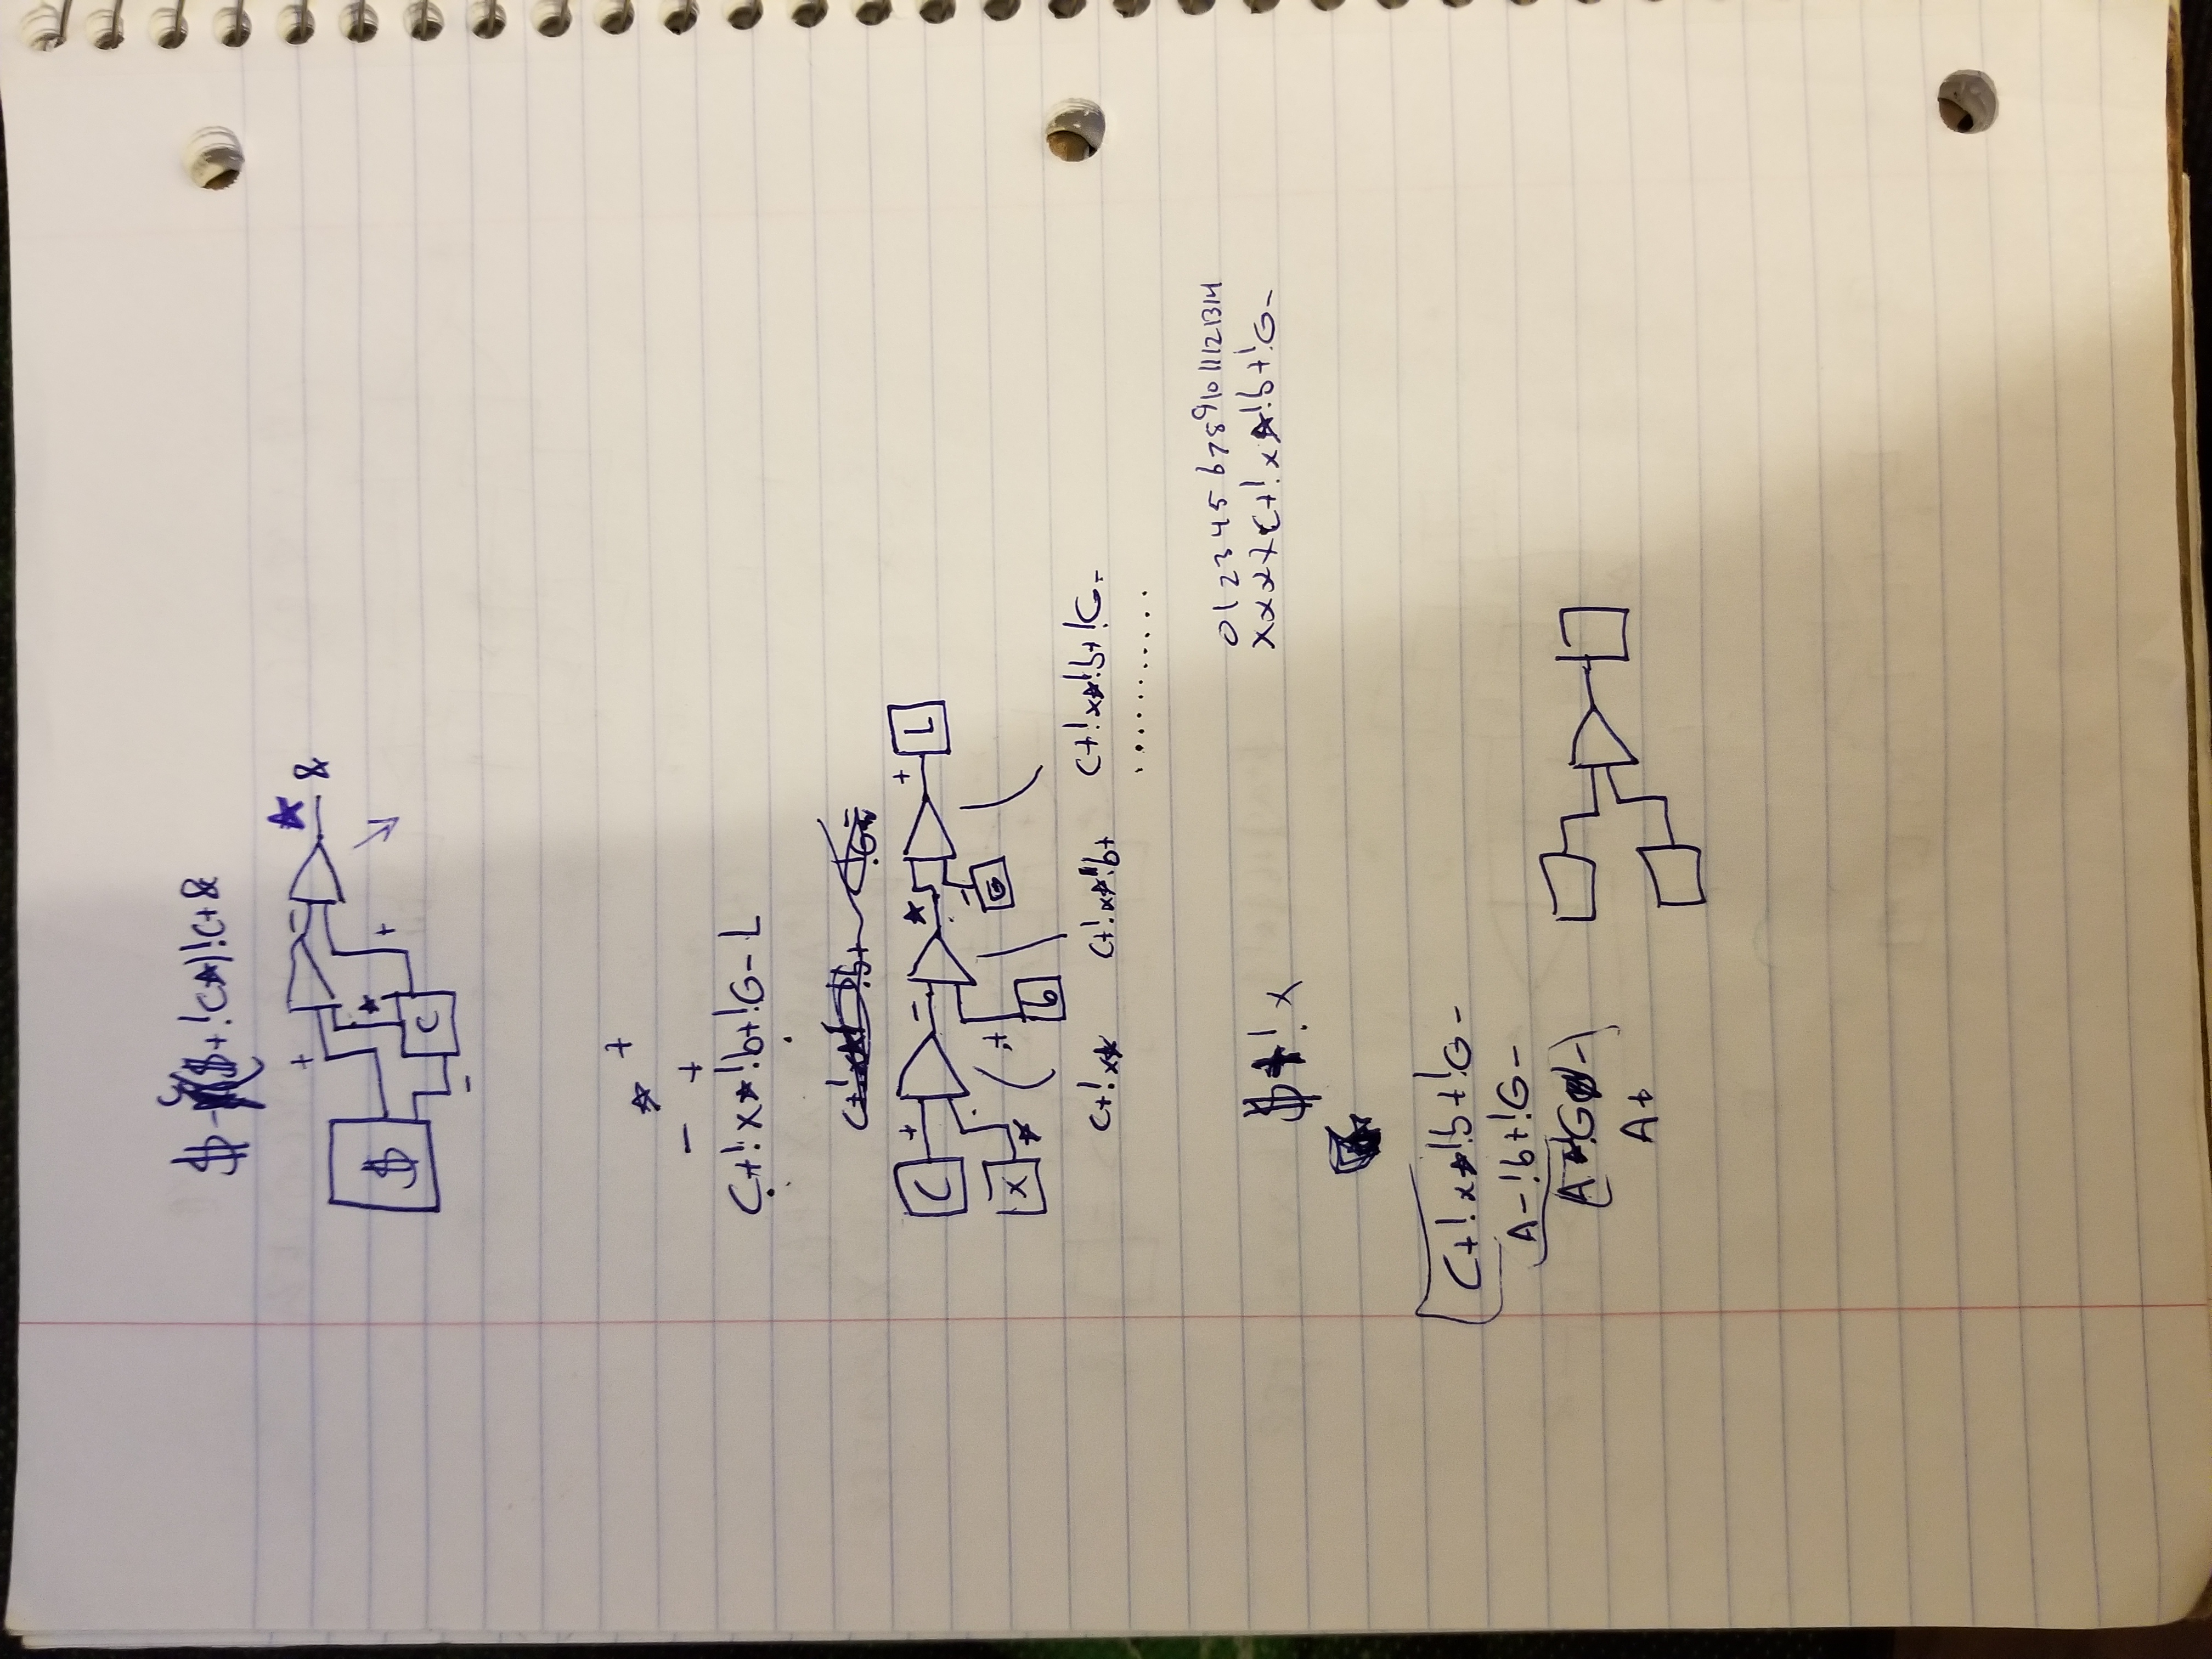 $ - ($+!C★)!C+&
+ - ★ &
$ ★ +
C
-
+
★
- +
C+!x★!b+!G- L
C + - ★ + L
X ★ + b - G
C+!x★ C+!x★!b+ C+!x★!b+!G-
0 1 2 3 4 5 6 7 8 9 10 11 12 13 14
xxxxC+!x★!b+!G-
$ ! x
C+!x★!b+!G-
A-!b+!G-
A★!G -
A+